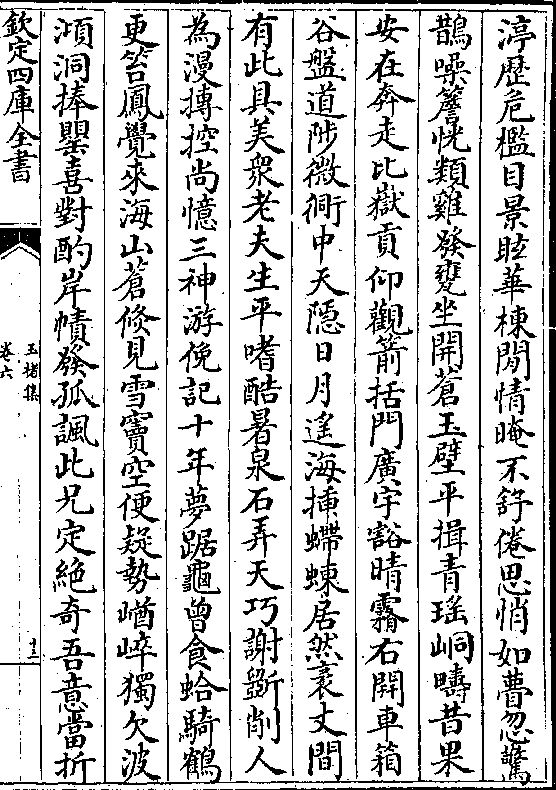 渟歷危檻目景眩華棟閒情晻不舒倦思悄如懵忽驚
鵲噪簷恍類雞發甕坐開蒼玉壁平揖青瑶峒疇昔果
安在奔走比嶽貢仰觀箭括門廣宇豁晴霧右闢車箱
谷盤道陟微衕中天隱日月遙海揷螮蝀居然袤丈間
有此具美衆老夫生平嗜酷暑泉石弄天巧謝斲削人
為漫摶控尚憶三神游俛記十年夢踞龜曾食蛤騎鶴
更笞鳳覺來海山蒼倏見雪竇空便疑勢崷崪獨欠波
澒洞捧罌喜對酌岸幘發孤諷此兄定絶奇吾意當折
欽定四庫全書
玉楮集
卷六
十三